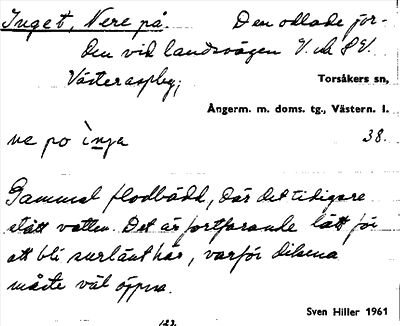 Inget, Nere på. Den odlade jor-
den vid landsvägen V. och S.V.
Västeraspby;
Torsåkers sn,
Ångerm. m. doms. tg., Västern. l.
ne po ìnga 38.
Gammal flodbädd, där det tidigare
stått vatten. Det är fortfarande lätt för
att bli surlänt här, varför dikena
måste väl öppna.
Sven Hiller 1961